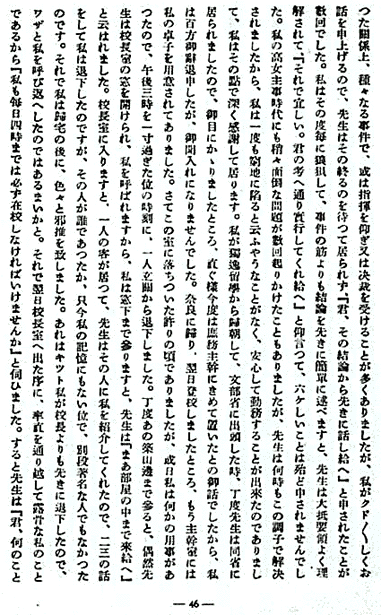 つた關係上、種々なる事件で、或は指揮を仰ぎ又は決裁を受けることが多くありましたが、私がクド〱しくお
話を申上げるので、先生はその終るのを待つて居られず『君、その結論から先きに話し給へ』と申されたことが
數回でした。私はその度每に狼狽して、事件の筋よりも結論を先きに簡單に述べますと、先生は大抵要領よく理
解されて、『それで宜しい。君の考へ通り實行してくれ給へ』と仰言つて、六ケしいことは殆ど申されませんでし
た。私の高女主事時代にも稍々面倒な問題が數回起りかけたこともありましたが、先生は何時もこの調子で解決
されましたから、私は一度も窮地に陷ると云ふやうなことがなく、安心して勤務することが出來たのでありまし
て、私はその點で深く感謝して居ります。私が獨逸留學から歸朝して、文部省に出頭した時、丁度先生は同省に
居られましたので、御目にかゝりましたところ、直ぐ樣今度は庶務主幹にきめて置いたとの御話でしたから、私
は百方御辭退申したが、御聞入れになりませんでした。奈良に歸り、翌日登校しましたところ、もう主幹室には
私の卓子を用意されてありました。さてこの室に落ちついた許りの頃でありましたが、或日私は何かの用事があ
つたので、午後三時を一寸過ぎた位の時刻に、一人玄關から退下しました。丁度あの築山邊まで參ると、偶然先
生は校長室の窓を開けられ、私を呼ばれますから、私は窓下まで參りますと、先生は『まあ部屋の中まで來給へ』
と云はれました。校長室に入りますと、一人の客が居つて、先生はその人に私を紹介してくれたので、二三の話
をして私は退下したのですが、その人が誰であつたか、只今私の記憶にもない位で、別段著名な人でもなかつた
のです。それで私は歸宅の後に、色々と邪推を致しました。あれはキツト私が校長よりも先きに退下したので、
ワザと私を呼び返へしたのではあるまいかと。それで翌日校長室へ出た序に、率直を通り越して露骨な私のこと
であるから『私も每日四時までは必ず在校しなければいけませんか』と伺ひました。すると先生は『君、何のこと
— 46 —